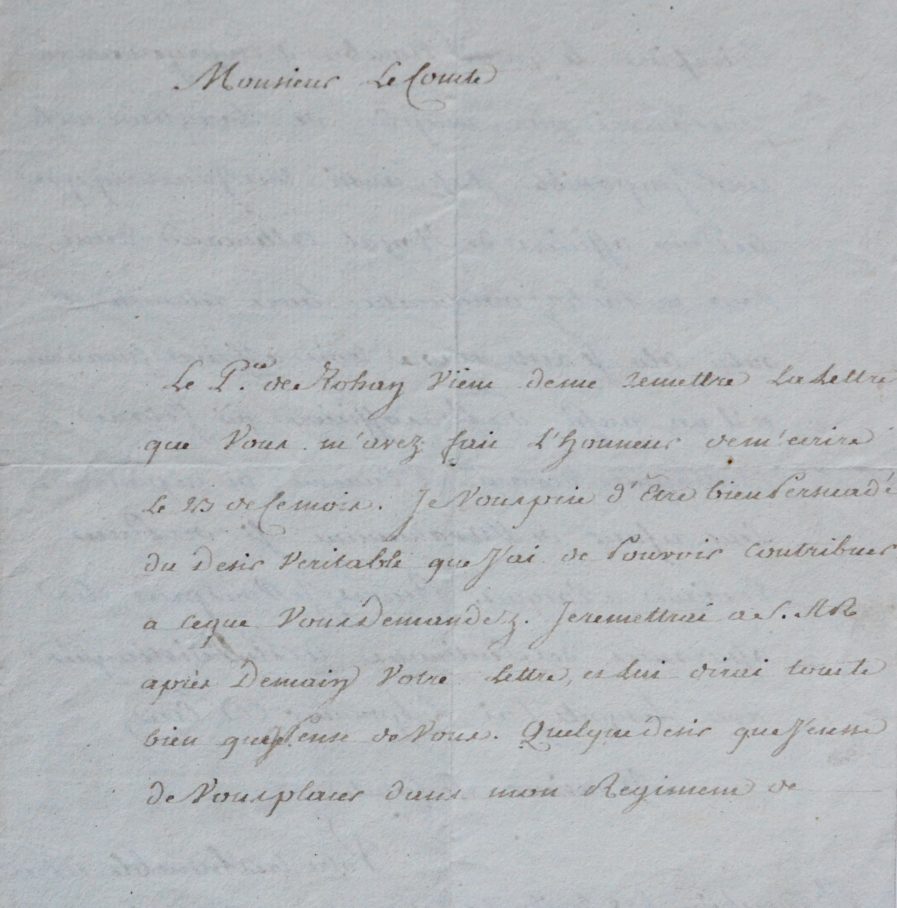 Monsieur Le Comte
Le P.ce de Rohan Vient de me remettre La Lettre
que Vous m'avez fait L'honneur de m'ecrire
Le 23 de Ce mois. Je Vous prie d'Etre bien Persuadé
du Desir Veritable que J'ai de Pouvoir Contribuer
a Ce que Vous Demandez. Je remettrai a S. AR
après Demain Votre Lettre, et lui dirai tout le
bien que Je Pense de Vous. Quelque desir que J'eusse
de Vous placer dans mon Regiment de